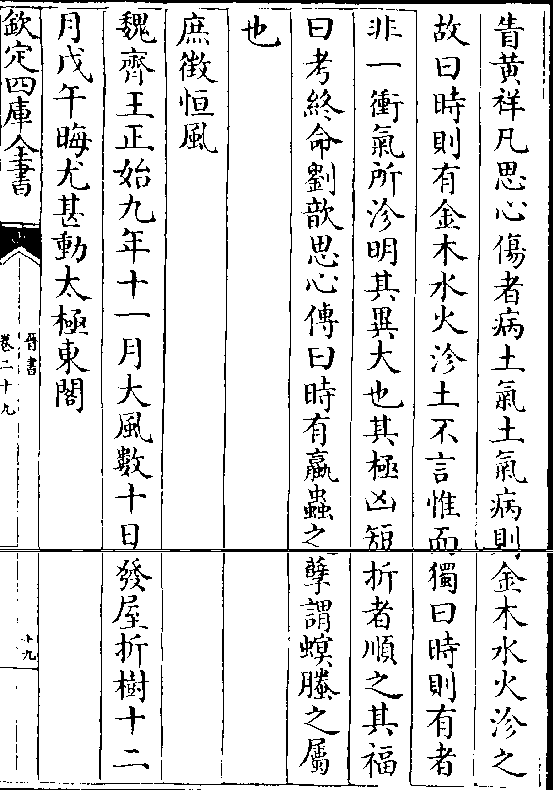 眚黄祥凡思心傷者病土氣土氣病則金木水火沴之
故曰時則有金木水火沴土不言惟而獨曰時則有者
非一衝氣所沴明其異大也其極凶短折者順之其福
曰考終命劉歆思心傳曰時有臝蟲之孽謂螟螣之屬
也
庶徴恒風
魏齊王正始九年十一月大風數十日發屋折樹十二
月戊午晦尤甚動太極東閣
欽定四庫全書
晉書
卷二十九
十九